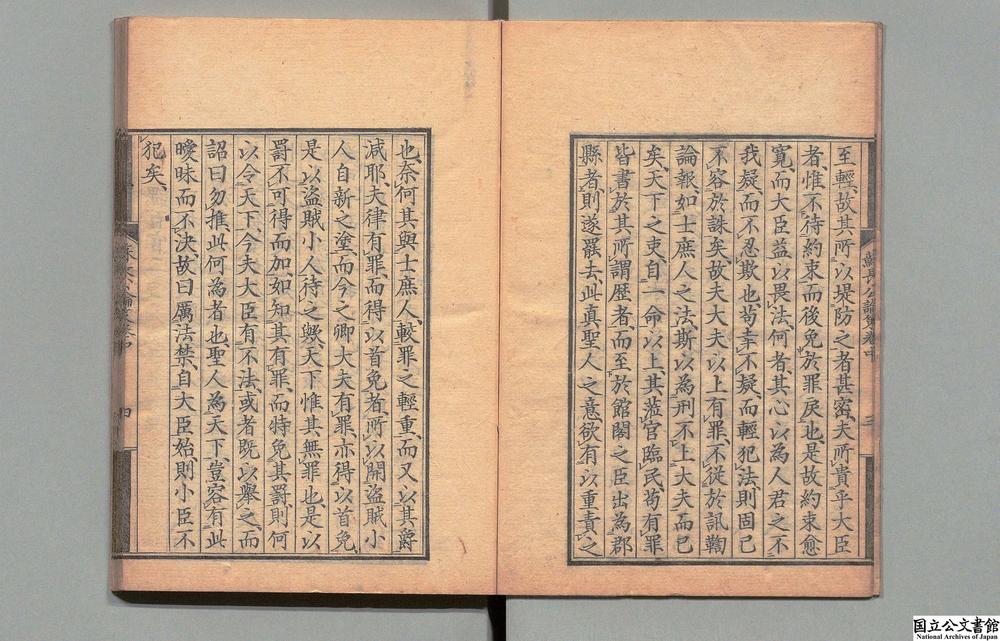 至輕、故其所以堤防之者甚密、夫所貴乎大臣
者、惟不待約束而後免於罪戾也、是故約束愈
寬、而大臣益以畏法、何者、其心以為人君之不
我疑、而不忍欺也、苟幸不疑、而輕犯法、則固已
不容於誅矣、故夫大夫以上有罪、不從於訊鞫
論報、如士庶人之法、斯以為刑不上大夫而已
矣、天下之吏、自一命以上、其涖官臨民、苟有罪
皆書於其所謂歷者、而至於館閣之臣出為郡
縣者、則遂罷去、此真聖人之意、欲有以重責之
也、奈何其與士庶人較罪之輕重、而又以其爵
減耶、夫律有罪、而得以首免者、所以開盜賊小
人自新之塗、而今之卿大夫有罪、亦得以首免、
是以盜賊小人待之歟、天下惟其無罪也、是以
罰不可得而加、如知其有罪、而特免其罰、則何
以令天下、今夫大臣有不法、或者既以舉之、而
詔曰勿推、此何為者也、聖人為天下、豈容有此
曖昧而不決、故曰厲法禁、自大臣始、則小臣不
犯矣、
国立公文書館
National Archives of Japan